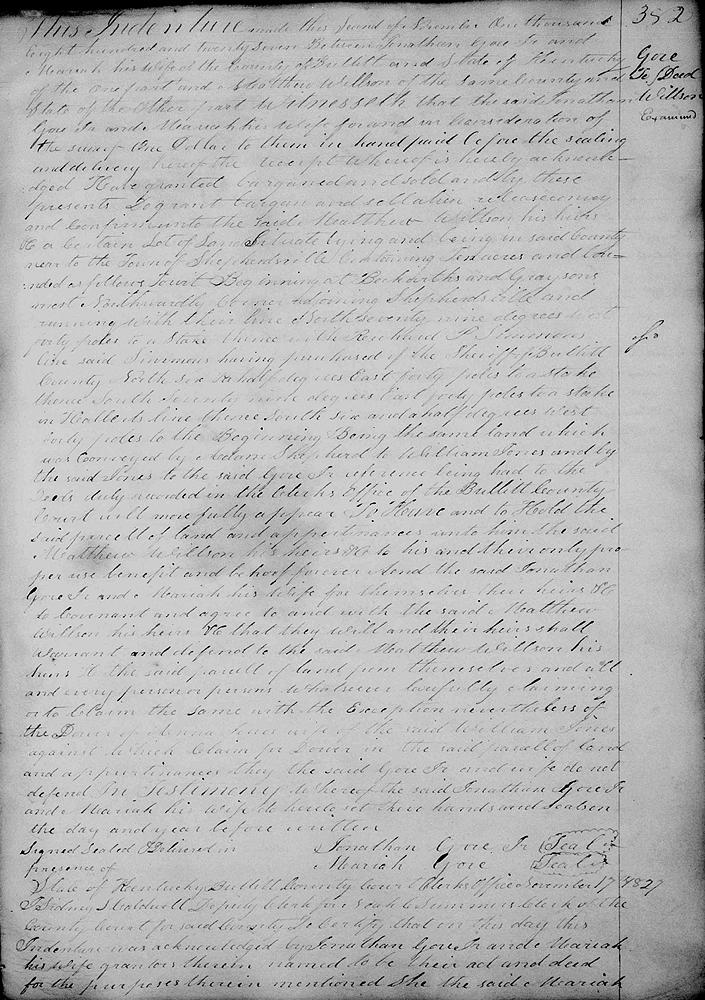 352
This Indenture made this Second of November One thousand
Eight hundred and twenty seven Between Jonathan Gore Jr and
Mariah his wife of the County of Bullitt and State of Kentucky
of the one part and Matthew Willson of the same County and
State of the other part Witnesseth that the said Jonathan
Gore Jr and Mariah his wife for and in Consideration of
the sum of One Dollar to them in hand paid before the sealing
and delivery hereof the receipt whereof is hereby acknowle-
dged Have granted bargained and sold and by these
presents Do grant bargain and sell alien release convey
and Confirm unto the said Matthew Willson his heirs
&C a Certain Lot of Land Situate lying and being in said County
near to the Town of Shepherdsville Containing Ten acres and bou-
nded as follows Towit Beginning at Beckwiths and Graysons
most Northwardly Corner adjoining Shepherdsville and
running with their line North seventy nine degrees West
forty poles to a Stake thence with Richard P. Simmons
line said Simmons having purchased of the Sheriff of Bullitt
County North six & a half degrees East forty poles to a stake
thence South Seventy nine degrees East forty poles to a stake
in line thence South six and a half degrees West
forty poles to the Beginning Being the same land which
was Conveyed by Adam Shepherd to William Jones and by
the said Jones to the said Gore Jr reference being had to the
Deeds duly recorded in the Clerks Office of the Bullitt County
Court will more fully appear To Have and to Hold the
said parcell of land and appertinances unto him the said
Matthew Willson his heirs &C to his and their only pro
per use benefit and behoof forever And the said Jonathan
Gore Jr and Mariah his Wife for themselves their heirs &C
do Covenant and agree to and with the said Matthew
Willson his heirs &C that they will and their heirs shall
Warrant and defend to the said Matthew Willson his
heirs &C the said parcell of land from themselves and all
and every person or persons Whatsoever lawfully claiming
or to Claim the same with the Exception nevertheless of
the Dower of Anna Jones wife of the said William Jones
against Which Claim for Dower in the said parcell of land
and appertinances they the said Gore Jr and wife do not
defend In Testimony Whereof the said Jonathan Gore Jr
and Mariah his Wife do hereto set their hands and seals on
the day and year before written
Signed Sealed & Delivered in Jonathan Gore Jr (Seal)
presence of Mariah Gore (Seal)
State of Kentucky Bullitt County Court Clerks Office November 17 1827
I Sidney S Caldwell Deputy Clerk for Noah C Summers Clerk of the
County Court for said County Do Certify that on this day this
Indenture was acknowledged by Jonathan Gore Jr and Mariah
his Wife grantors therein named to be their act and deed
for the purposes therein mentioned She the said Mariah
Gore
To / Deed
Willson
Examined